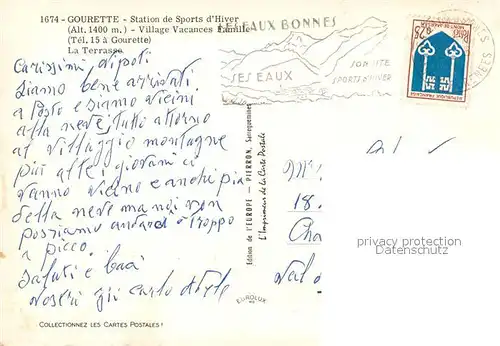 1674 - GOURETTE - Station de Sports d'Hiver
(Alt. 1400 m.) - Village Vacances Famille
(Tél. 15 à Gourette)
La Terrasse
LES EAUX BONNES
SES EAUX
SON SITE
SPORTS D'HIVER
REPUBLIQUE FRANÇAISE
Carissimi nipoti
Siamo bene arrivati
a Posto e siamo vicini
alla neve tutti attorno
al villaggio montagne
più alte i giovani ci
vanno vicino e anche più
della neve ma noi non
possiamo andare troppo
a picco.
Saluti e baci
Vostri zii Carlo
Edition de l'EUROPE - PIERRON, Sarreguemines
L'Imprimeur de la Carte Postale
EUROLUX
18.
Cha
privacy protection
Datenschutz
COLLECTIONNEZ LES CARTES POSTALES !